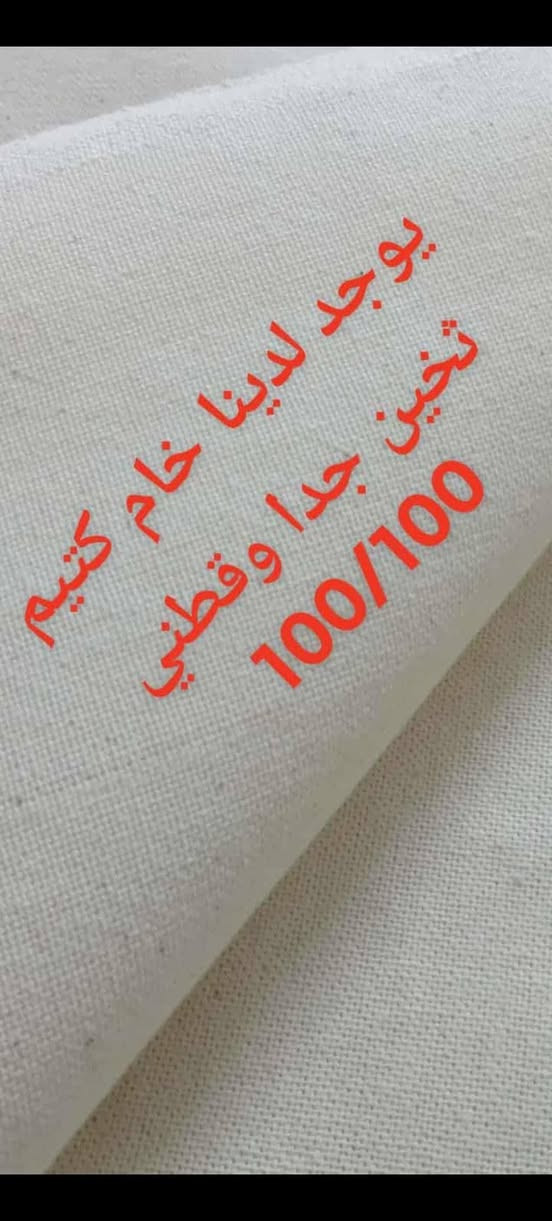 يوجد لدينا خام كتيم
ثخين جدا وقطني
100/100